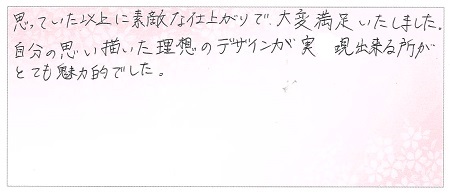 思っていた以上に素敵な仕上がりで、大変満足いたしました。
自分の思い描いた理想のデザインが実 現出来る所が
とても魅力的でした。